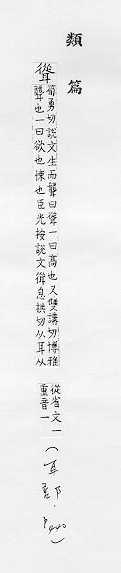 類篇
聳
筍勇切說文生而聾曰聳一曰高也又雙講切博雅
聾也一曰欲也悚也臣光按說文聳息拱切从耳从
從省文一
重音一
(耳部.P440)